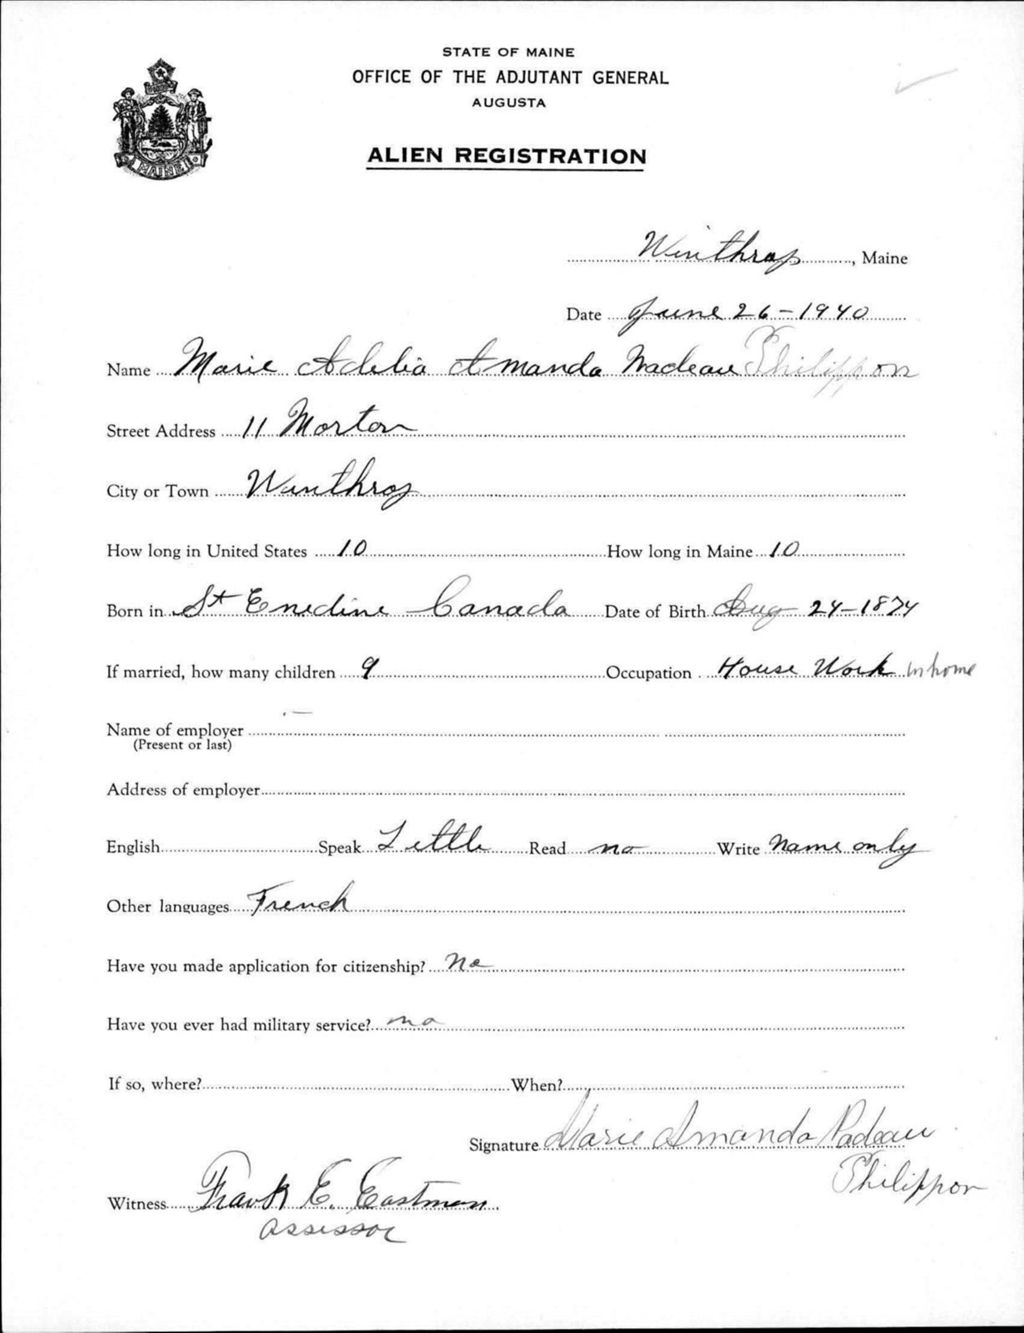 STATE OF MAINE
OFFICE OF THE ADJUTANT GENERAL
AUGUSTA
ALIEN REGISTRATION
MAINE
Winthrop, Maine
Date June 26-1940
Name Marie Adelia Amanda Nadeau Philippon
Street Address 11 Morton
City or Town Winthrop
How long in United States 10 How long in Maine 10
Born in St Enedine Canada Date of Birth Aug 24-1874
If married, how many children 9 Occupation House Work in home
Name of employer —
(Present or last)
Address of employer
English Speak Little Read no Write Name only
Other languages French
Have you made application for citizenship? No
Have you ever had military service? no
If so, where? When?
Signature Marie Amanda Nadeau
Philippon
Witness Frank E. Eastman
Assessor